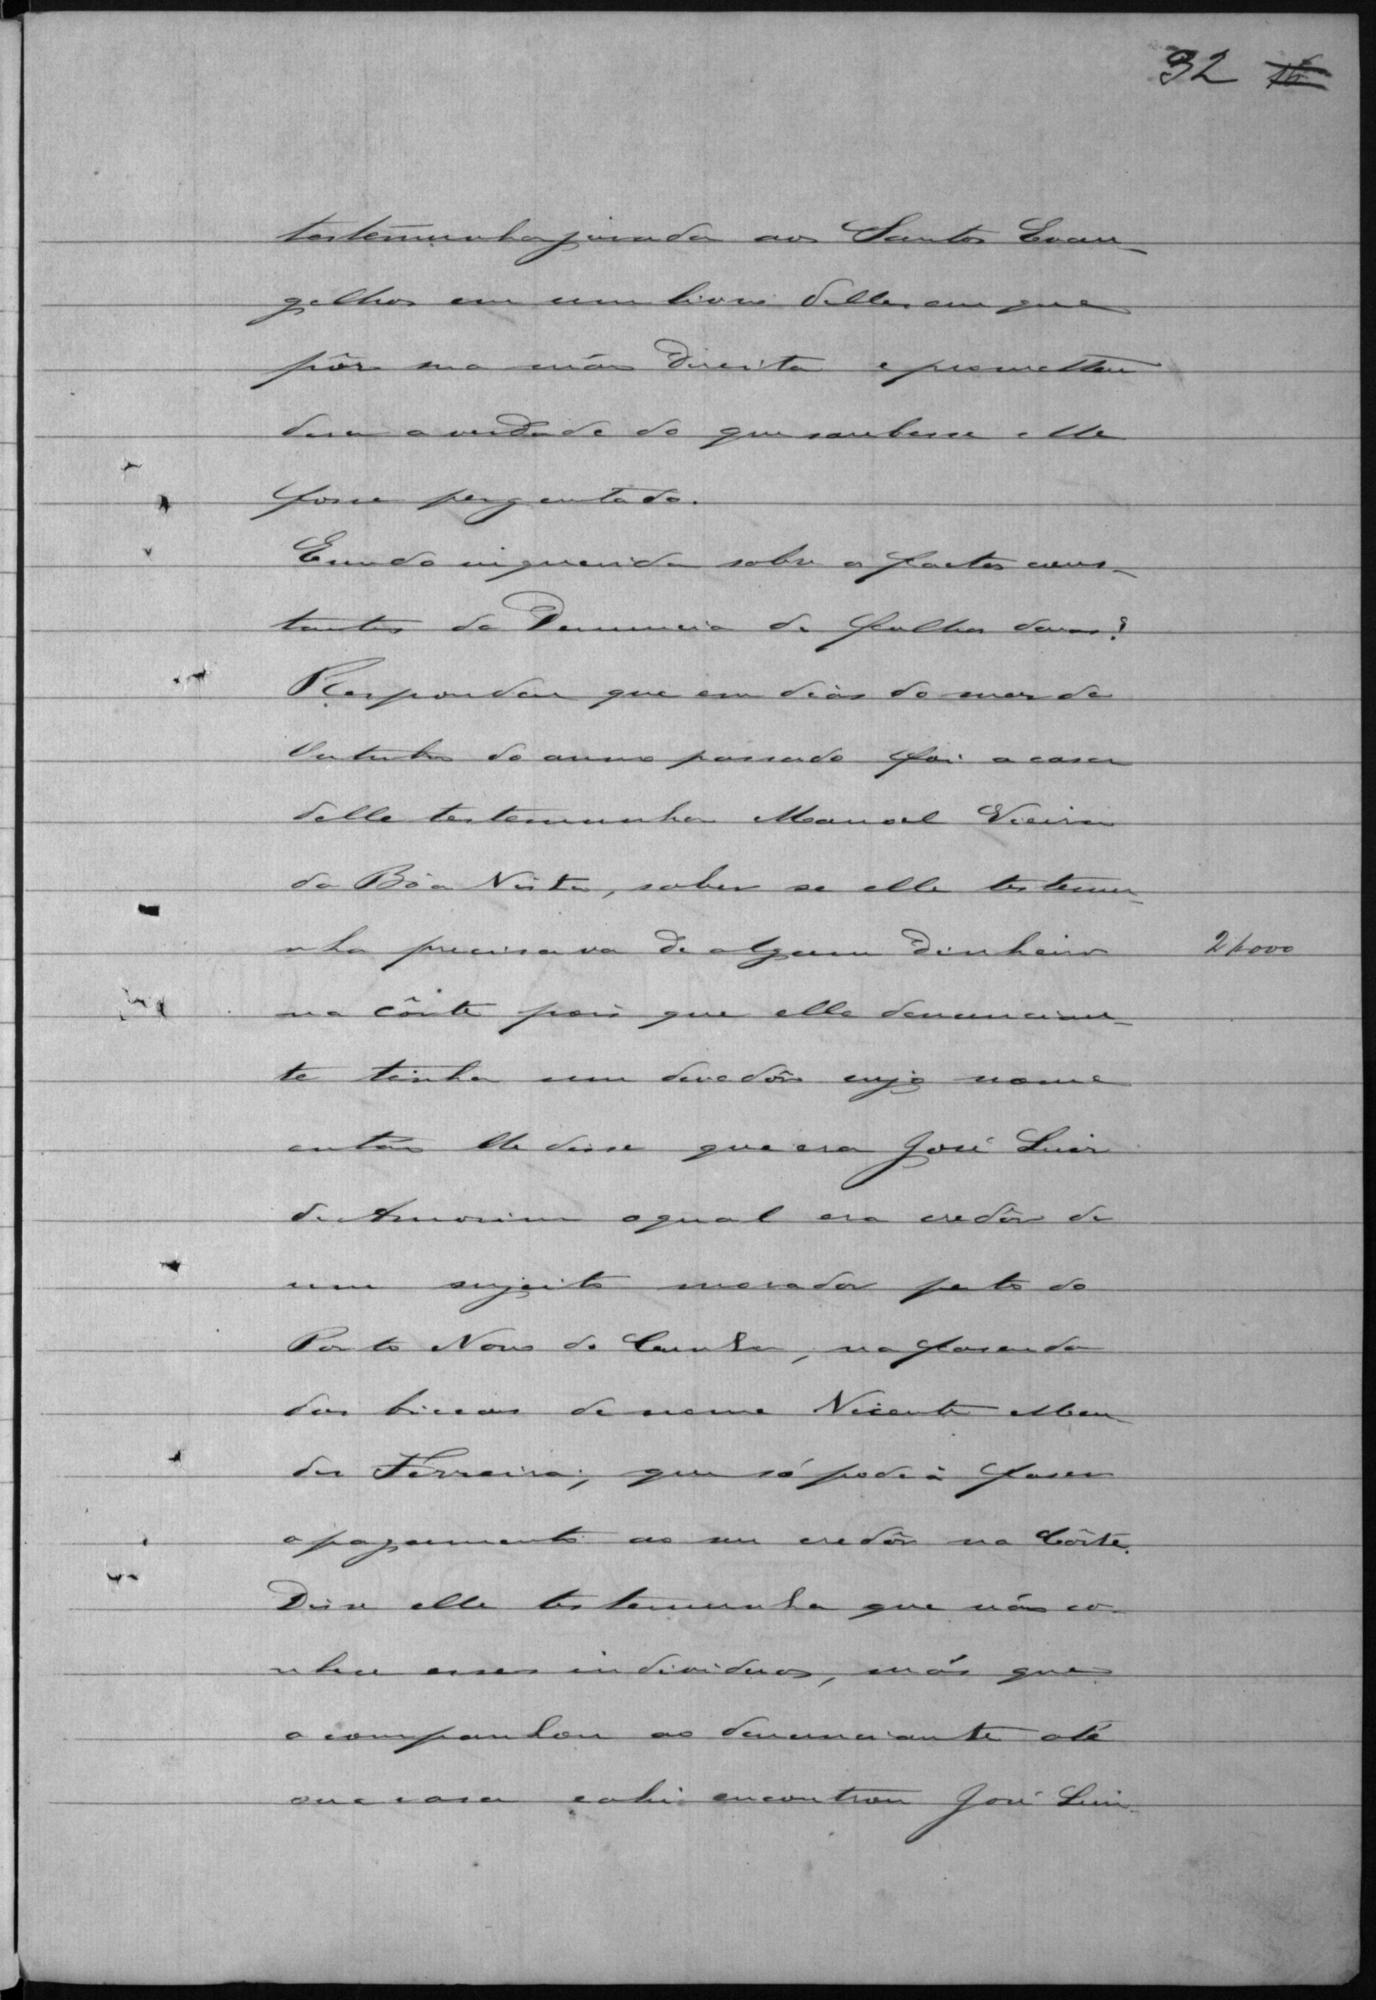 32
testemunha jurada aos Santos Evan-
gelhos em um livro delles em que
pôs sua mão direita e prometteu
diser a verdade do que soubesse e lhe
fosse perguntado.
E sendo inquerida sobre os factos cons-
tantes da Denuncia de folhas duas?
Respondeu que em dias do mes de
Outubro do anno passado foi a casa
delle testemunha Manoel Vieira
da Bôa Vista, saber se elle testemu-
nha precisava de algum dinheiro
2$000
na Côrte pois que elle denuncian-
te tinha um devedôr cujo nome
então lhe disse que era José Luis
de Amorim o qual era credôr de
um sujeito morador perto do
Porto Novo do Cunha, na fasenda
das bicas de nome Vicente Men-
des Ferreira, que só podia faser
o pagamento ao seu credôr na Côrte.
Disse elle testemunha que não co-
nhece esses individuos, más que
acompanhou ao denunciante até
sua casa e ahi encontrou José Luis